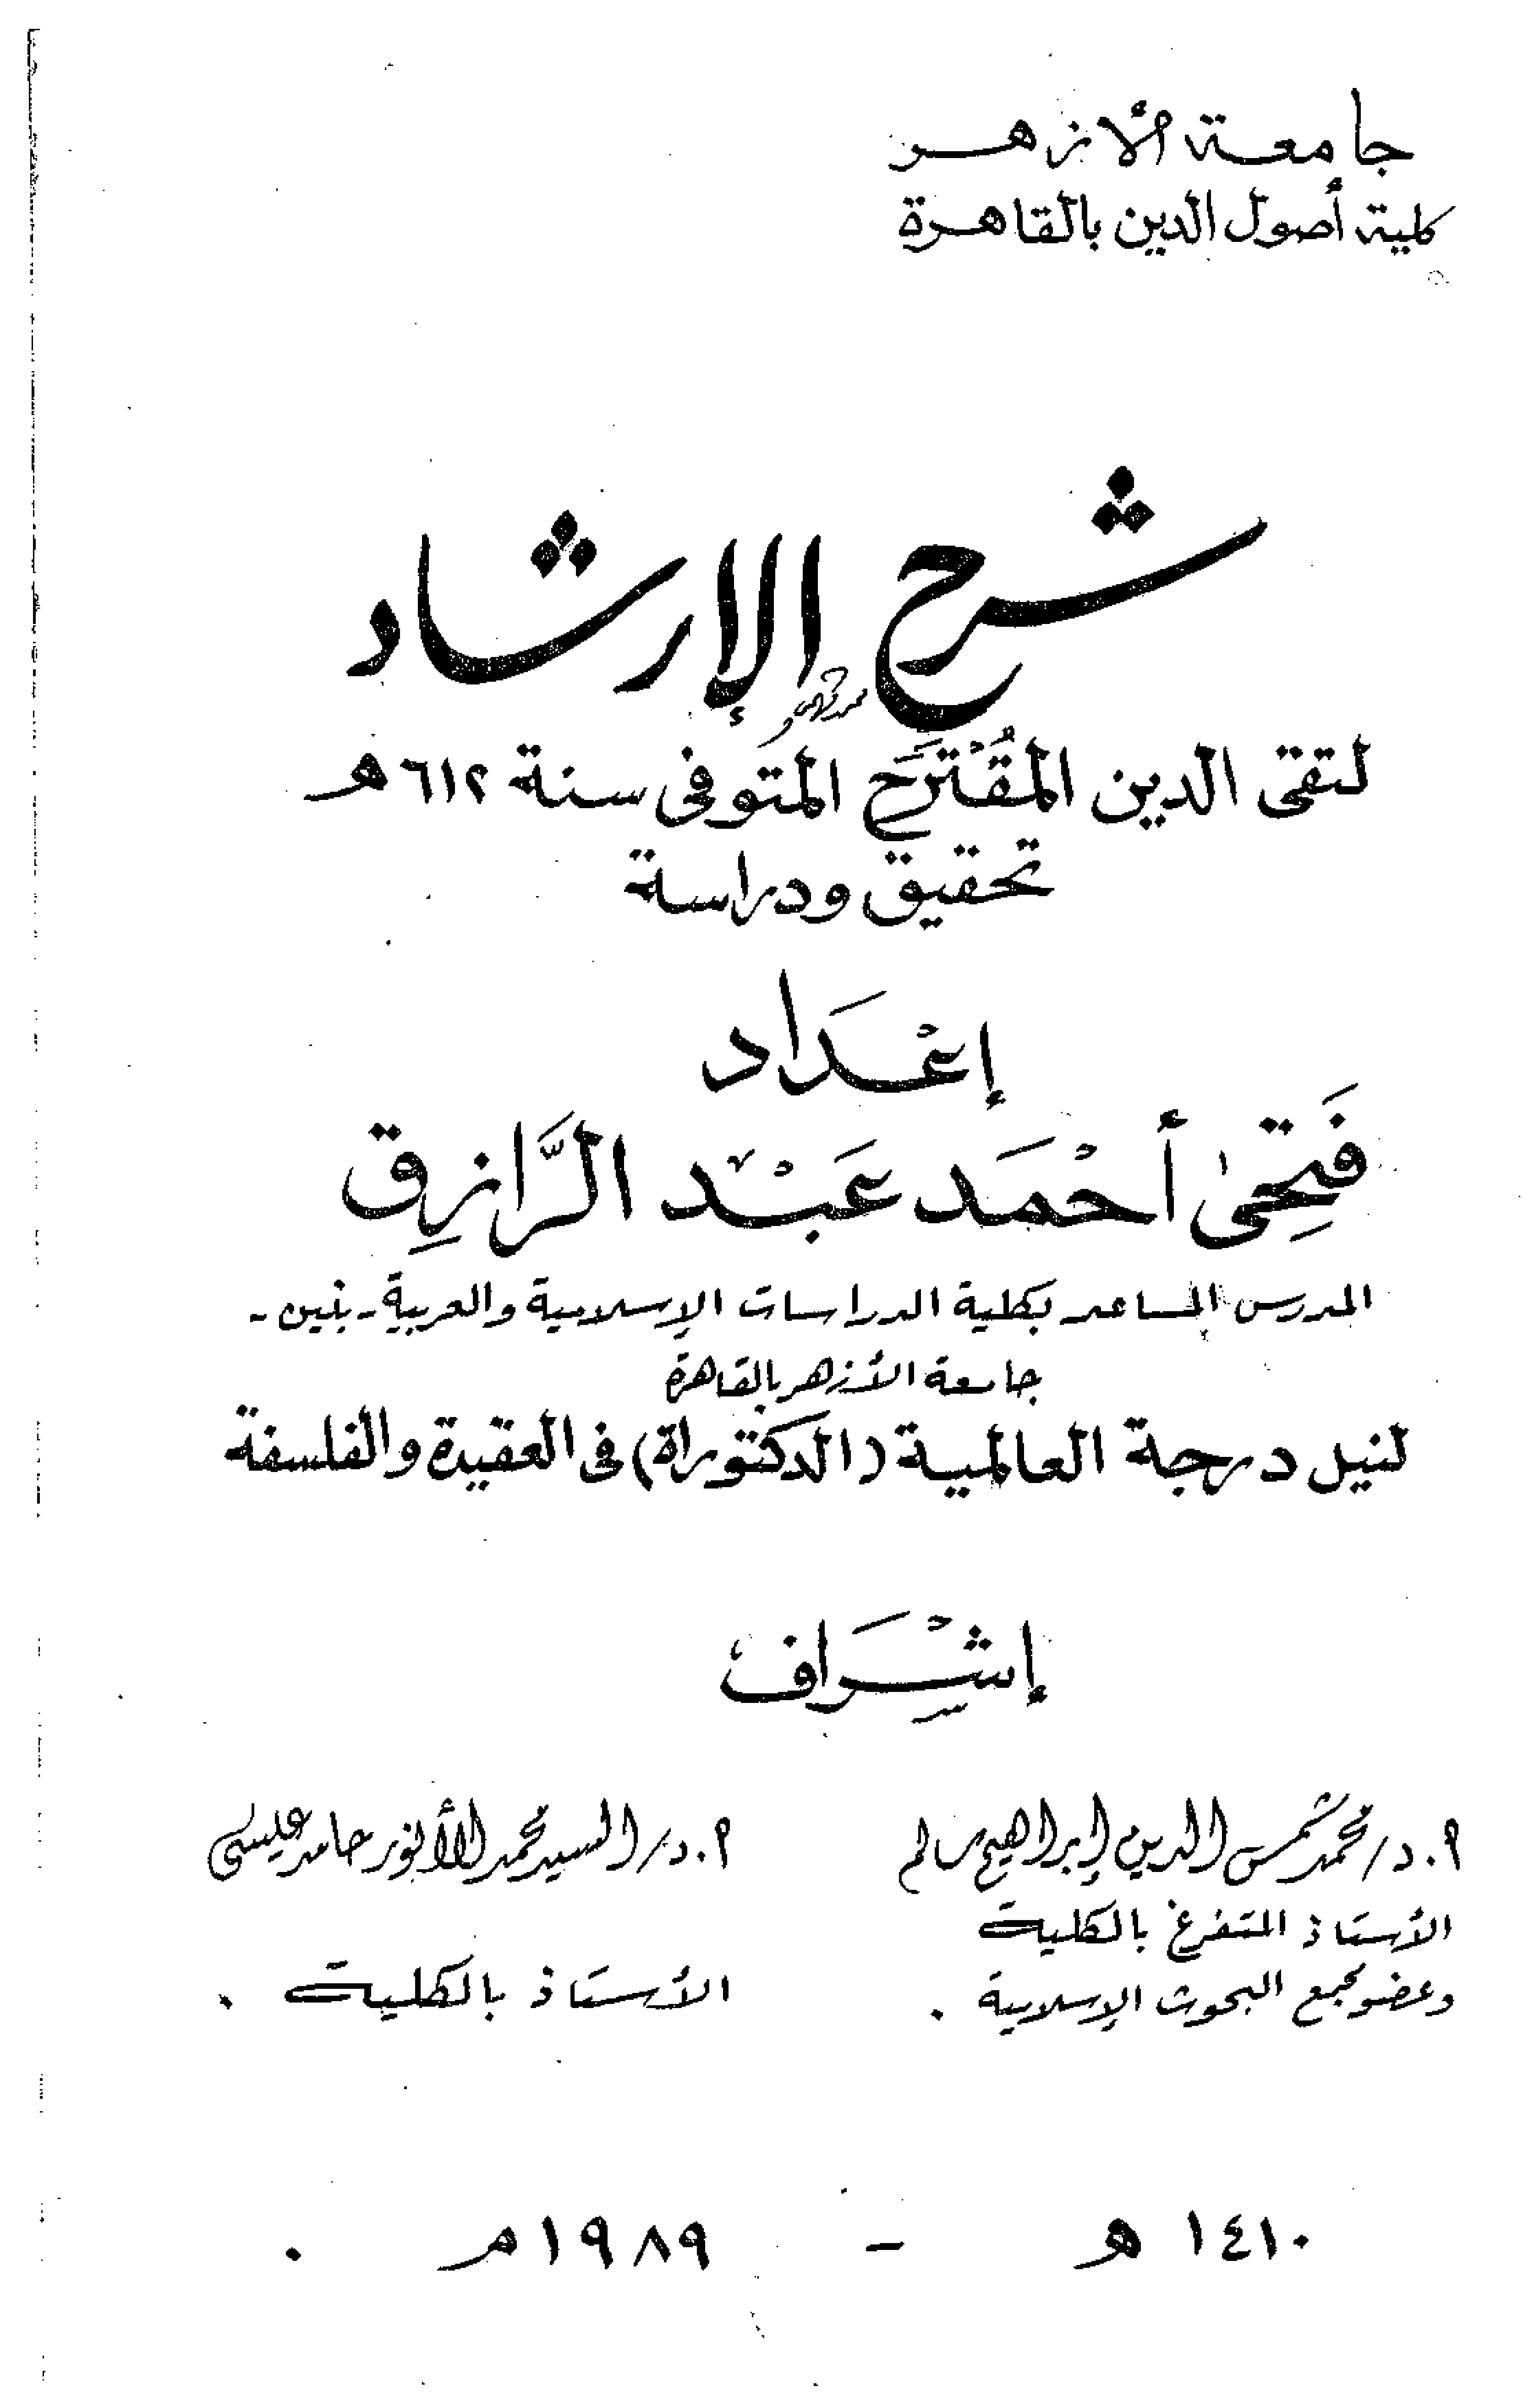 جامعة الأزهر
كلية أصول الدين بالقاهرة
شرح الإرشاد
لتقى الدين المُقْتَرَح المتوفى سنة ٦١٢ هـ
تحقيق ودراسة
إعْدَاد
فَتحِى أحْمَد عَبْد الرَّازِق
المدرس المساعد بكلية الدراسات الإسلامية والعربية - بنين -
جامعة الأزهر بالقاهرة
لنيل درجة العالمية (الدكتوراة) فى العقيدة والفلسفة
إشْرَاف
أ.د/ محمد شمس الدين إبراهيم سالم
الأستاذ المتفرغ بالكلية
وعضو مجمع البحوث الإسلامية .
أ.د/ السيد محمد الأنور حامد عيسى
الأستاذ بالكلية .
١٤١٠ هـ - ١٩٨٩ م .